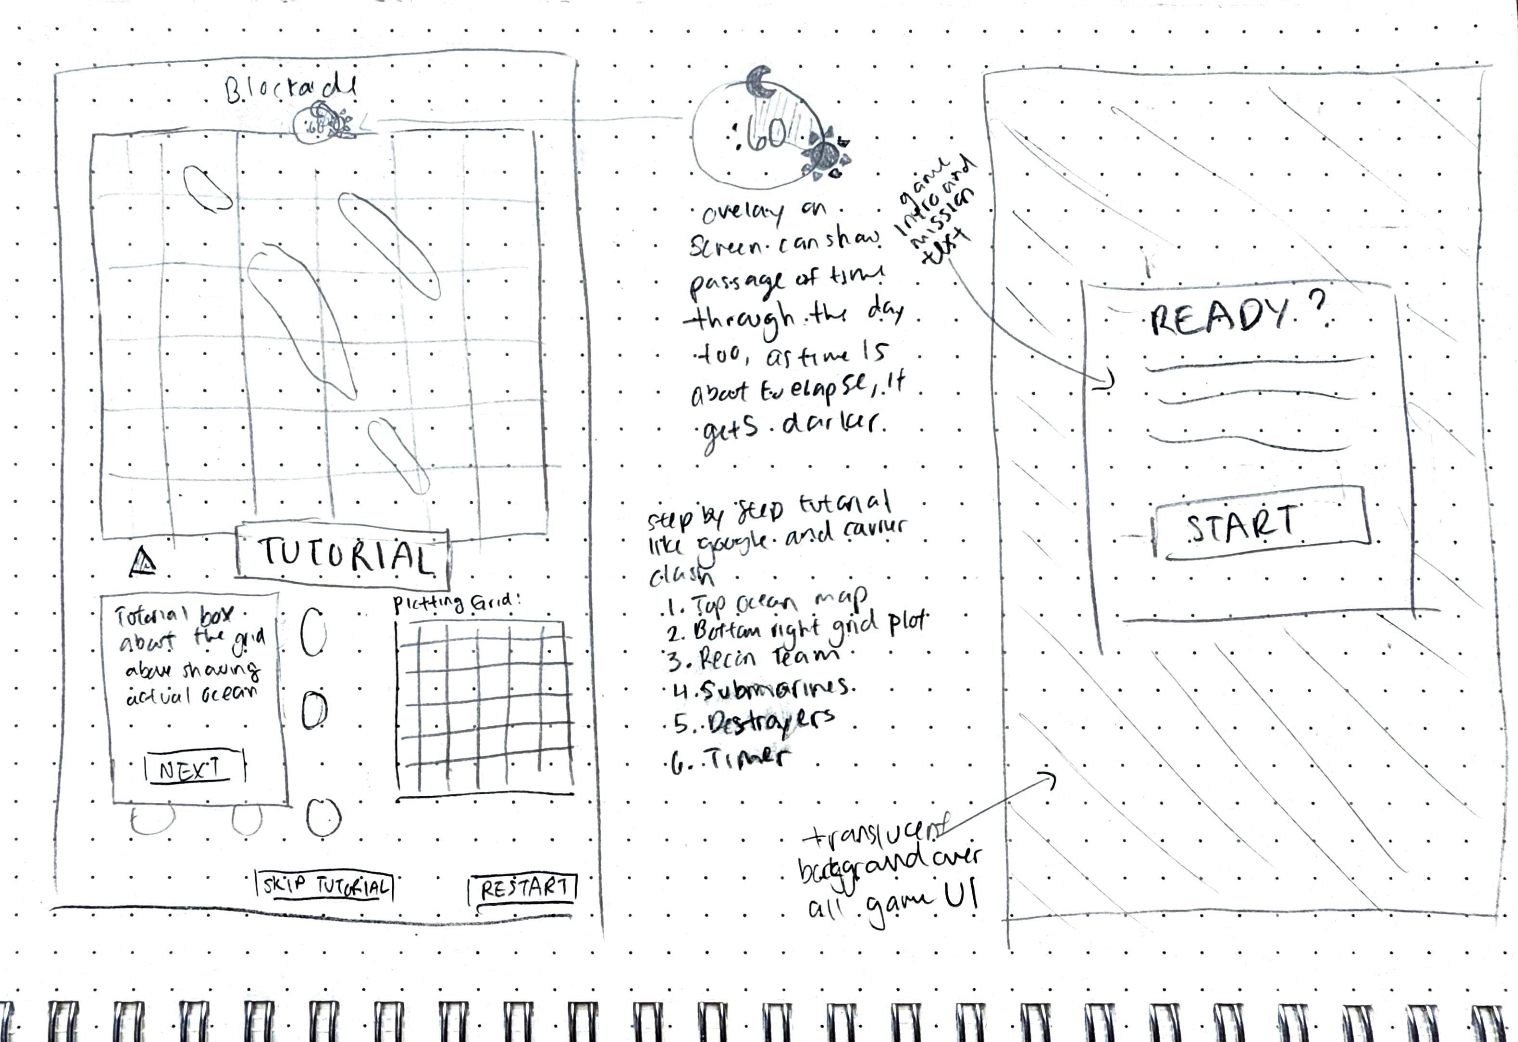 Blockade
:60
TUTORIAL
Tutorial box
about the grid
above showing
actual ocean
NEXT
Plotting Grid:
SKIP TUTORIAL
RESTART
:60
overlay on
screen can show
passage of time
through the day
too, as time is
about to elapse, it
gets darker.
step by step tutorial
like google and carrier
clash
1. Top ocean map
2. Bottom right grid plot
3. Recon Team
4. Submarines
5. Destroyers
6. Timer
game
intro and
mission
text
READY?
START
translucent
background over
all game UI